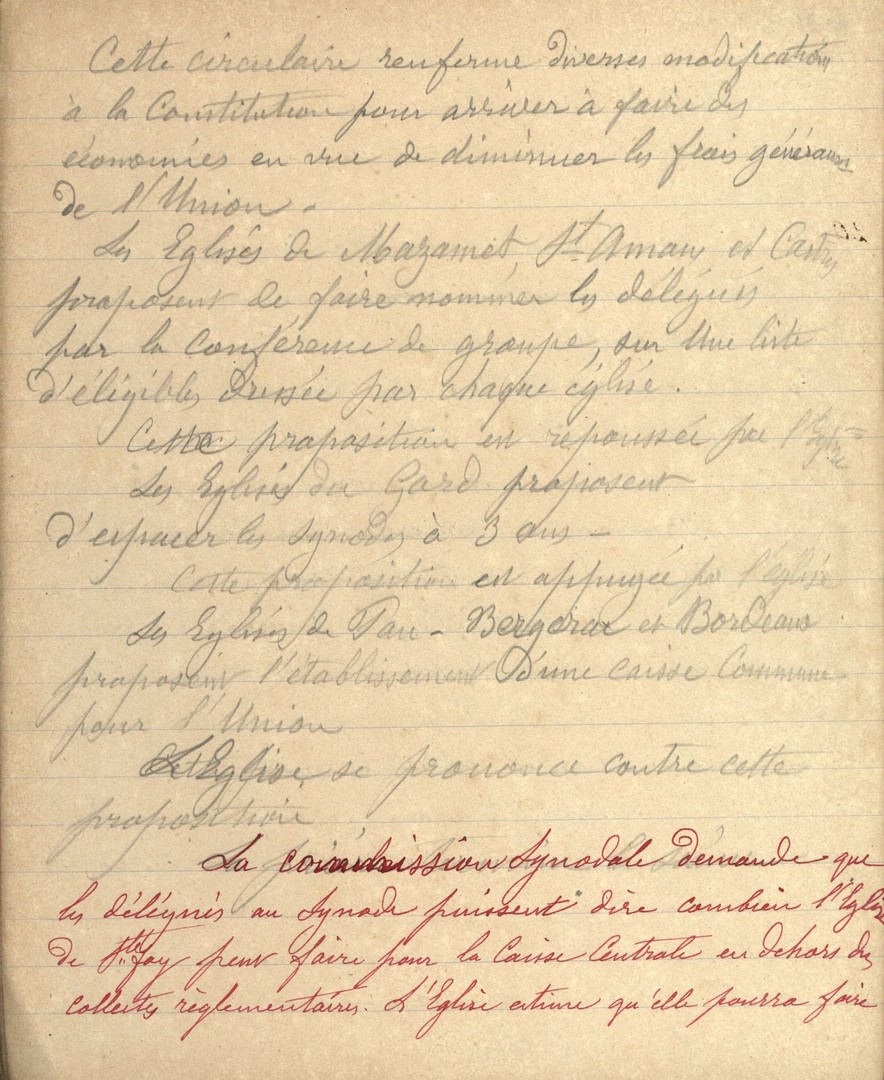 Cette circulaire renferme diverses modifications
à la Constitution pour arriver à faire des
économies en vue de diminuer les frais généraux
de l'Union -
Les Eglises de Mazamet St Aman et Castres
proposent de faire nommer les délégués
par la conférence de groupe, sur une liste
d'éligibles dressée par chaque église.
Cette proposition est repoussée par l'Eglise
Les Eglises du Gard proposent
d'espacer les synodes à 3 ans -
Cette proposition est appuyée par l'église
Les Eglises de Pau - Bergerac et Bordeaux
proposent l'établissement d'une caisse Commune
pour l'Union
L'Eglise se prononce contre cette
proposition
La commission Synodale demande que
les délégués au Synode puissent dire combien l'Eglise
de Ste foy peut faire pour la Caisse Centrale en dehors des
collectes règlementaires. L'Eglise estime qu'elle pourra faire